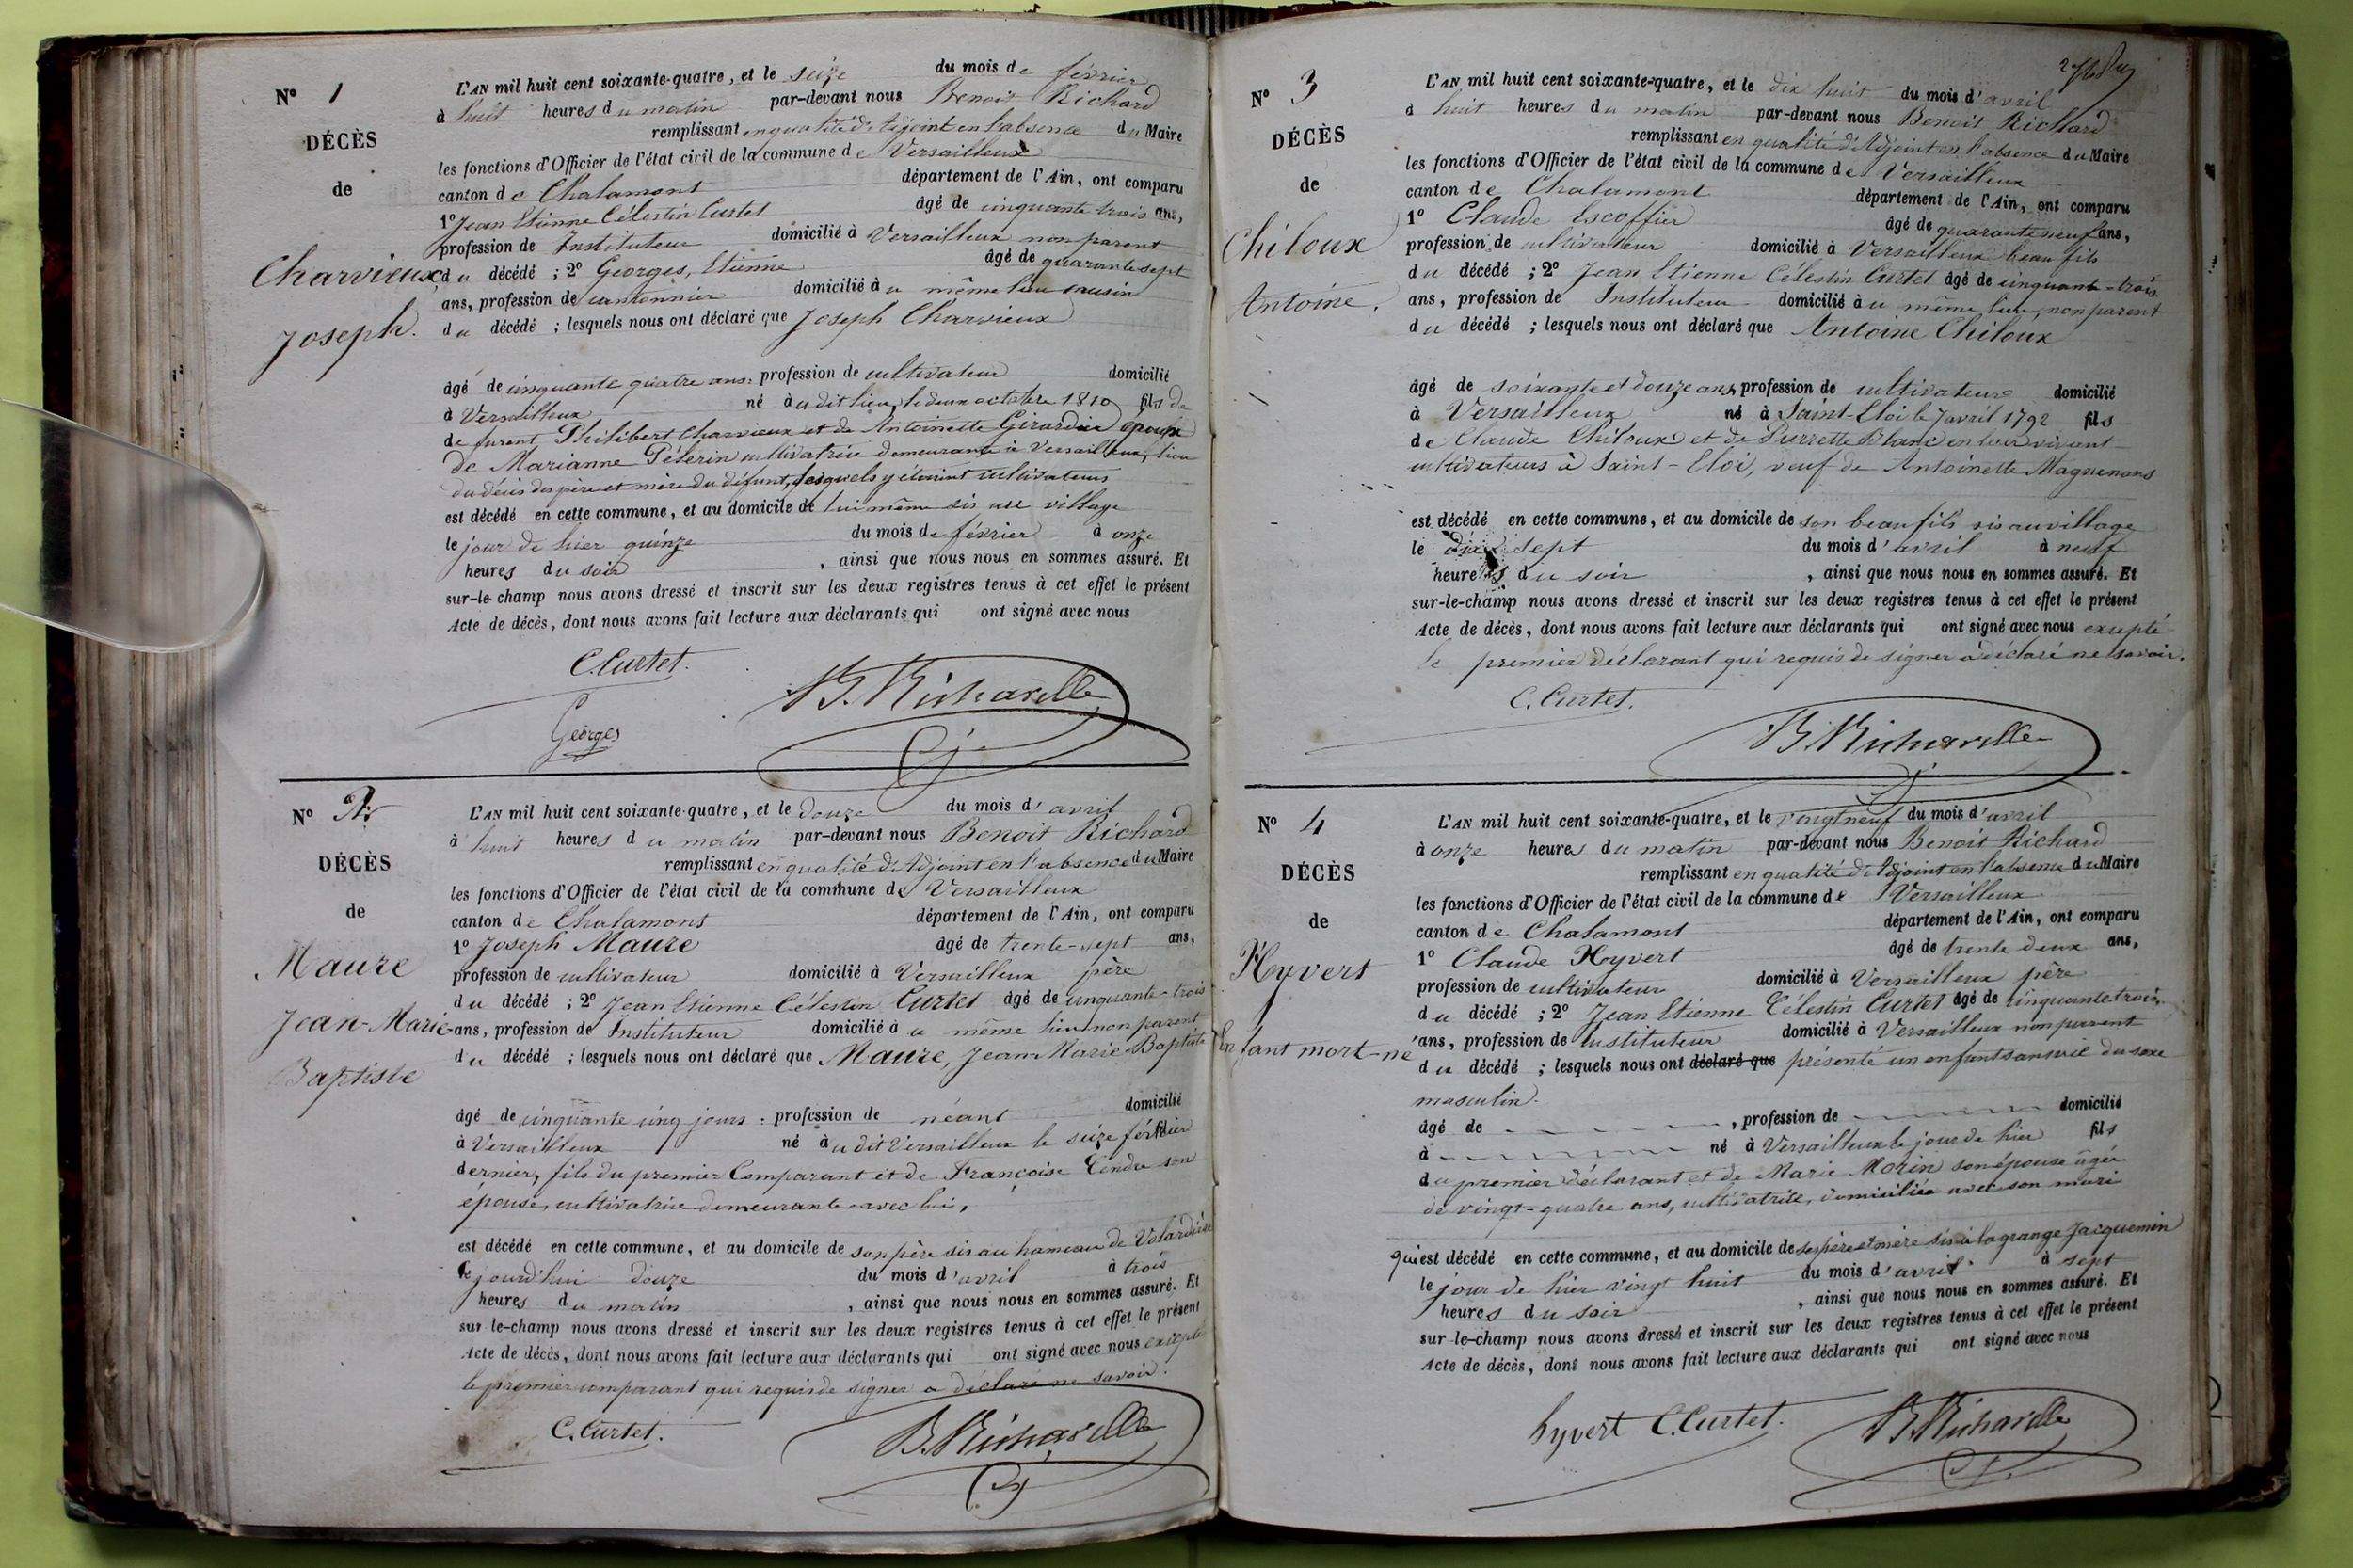 N° 1
DÉCÈS
de
Charvieux
Joseph.
L'AN mil huit cent soixante-quatre, et le seize du mois de février
à huit heures du matin par-devant nous Benoit Richard
remplissant en qualité d'Adjoint en l'absence du Maire
les fonctions d'Officier de l'état civil de la commune de Versailleux
canton de Chalamont département de l'Ain, ont comparu
1° Jean Etienne Célestin Curtet âgé de cinquante trois ans,
profession de Instituteur domicilié à Versailleux non parent
du décédé ; 2° Georges, Etienne âgé de quarante sept
ans, profession de cantonnier domicilié au même lieu cousin
du décédé ; lesquels nous ont déclaré que Joseph Charvieux
âgé de cinquante quatre ans profession de cultivateur domicilié
à Versailleux né audit lieu, le deux octobre 1810 fils de
de furent Philibert Charvieux et de Antoinette Girardin époux
de Marianne Pélerin cultivatrice demeurante à Versailleux, lieu
du décès des père et mère du défunt, lesquels y étaient cultivateurs
est décédé en cette commune, et au domicile de lui même sis au village
le jour de hier quinze du mois de février à onze
heures du soir , ainsi que nous nous en sommes assuré. Et
sur-le-champ nous avons dressé et inscrit sur les deux registres tenus à cet effet le présent
Acte de décès, dont nous avons fait lecture aux déclarants qui ont signé avec nous
C. Curtet.
B. Richard
Georges
N° 2
DÉCÈS
de
Maure
Jean-Marie-
Baptiste
L'AN mil huit cent soixante-quatre, et le douze du mois d'avril
à huit heures du matin par-devant nous Benoit Richard
remplissant en qualité d'Adjoint en l'absence du Maire
les fonctions d'Officier de l'état civil de la commune de Versailleux
canton de Chalamont département de l'Ain, ont comparu
1° Joseph Maure âgé de trente-sept ans,
profession de cultivateur domicilié à Versailleux père
du décédé ; 2° Jean Etienne Célestin Curtet âgé de cinquante-trois
ans, profession de Instituteur domicilié au même lieu non parent
du décédé ; lesquels nous ont déclaré que Maure, Jean Marie Baptiste
âgé de cinquante cinq jours profession de néant domicilié
à Versailleux né audit Versailleux le seize février fils
dernier, fils du premier Comparant et de Françoise Tendre son
épouse, cultivatrice demeurante avec lui,
est décédé en cette commune, et au domicile de son père sis au hameau de
le jourd'hui douze du mois d'avril à trois
heures du matin , ainsi que nous nous en sommes assuré. Et
sur le-champ nous avons dressé et inscrit sur les deux registres tenus à cet effet le présent
Acte de décès, dont nous avons fait lecture aux déclarants qui ont signé avec nous excepté
le premier comparant qui requis de signer a déclaré ne savoir.
C. Curtet.
B. Richard
N° 3
DÉCÈS
de
Chiloux
Antoine.
L'AN mil huit cent soixante-quatre, et le dix huit du mois d'avril
à huit heures du matin par-devant nous Benoit Richard
remplissant en qualité d'Adjoint en l'absence du Maire
les fonctions d'Officier de l'état civil de la commune de Versailleux
canton de Chalamont département de l'Ain, ont comparu
1° Claude Escoffier âgé de quarante neuf ans,
profession de cultivateur domicilié à Versailleux beau fils
du décédé ; 2° Jean Etienne Célestin Curtet âgé de cinquante-trois
ans, profession de Instituteur domicilié au même lieu, non parent
du décédé ; lesquels nous ont déclaré que Antoine Chiloux
âgé de soixante et douze ans, profession de cultivateur domicilié
à Versailleux né à Saint-Eloi le 7 avril 1792 fils
de Claude Chiloux et de Pierrette Blanc en leur vivant
cultivateurs à Saint-Eloi, veuf de Antoinette Magninans
est décédé en cette commune, et au domicile de son beau fils sis au village
le dix sept du mois d'avril à neuf
heures du soir , ainsi que nous nous en sommes assuré. Et
sur-le-champ nous avons dressé et inscrit sur les deux registres tenus à cet effet le présent
Acte de décès, dont nous avons fait lecture aux déclarants qui ont signé avec nous excepté
le premier déclarant qui requis de signer a déclaré ne savoir.
C. Curtet.
B. Richard
N° 4
DÉCÈS
de
Hyvert
Enfant mort-né
L'AN mil huit cent soixante-quatre, et le vingt neuf du mois d'avril
à onze heures du matin par-devant nous Benoit Richard
remplissant en qualité d'Adjoint en l'absence du Maire
les fonctions d'Officier de l'état civil de la commune de Versailleux
canton de Chalamont département de l'Ain, ont comparu
1° Claude Hyvert âgé de trente deux ans,
profession de cultivateur domicilié à Versailleux père
du décédé ; 2° Jean Etienne Célestin Curtet âgé de cinquante trois
ans, profession de Instituteur domicilié à Versailleux non parent
du décédé ; lesquels nous ont déclaré que présenté un enfant sans vie du sexe
masculin.
âgé de , profession de domicilié
à né à Versailleux le jour de hier fils
du premier déclarant et de Marie Morin son épouse âgée
de vingt-quatre ans, cultivatrice, domiciliée avec son mari
qui est décédé en cette commune, et au domicile de ses père et mère sis à la grange Jacquemin
le jour de hier vingt huit du mois d'avril à sept
heures du soir , ainsi que nous nous en sommes assuré. Et
sur-le-champ nous avons dressé et inscrit sur les deux registres tenus à cet effet le présent
Acte de décès, dont nous avons fait lecture aux déclarants qui ont signé avec nous
hyvert C. Curtet.
B. Richard